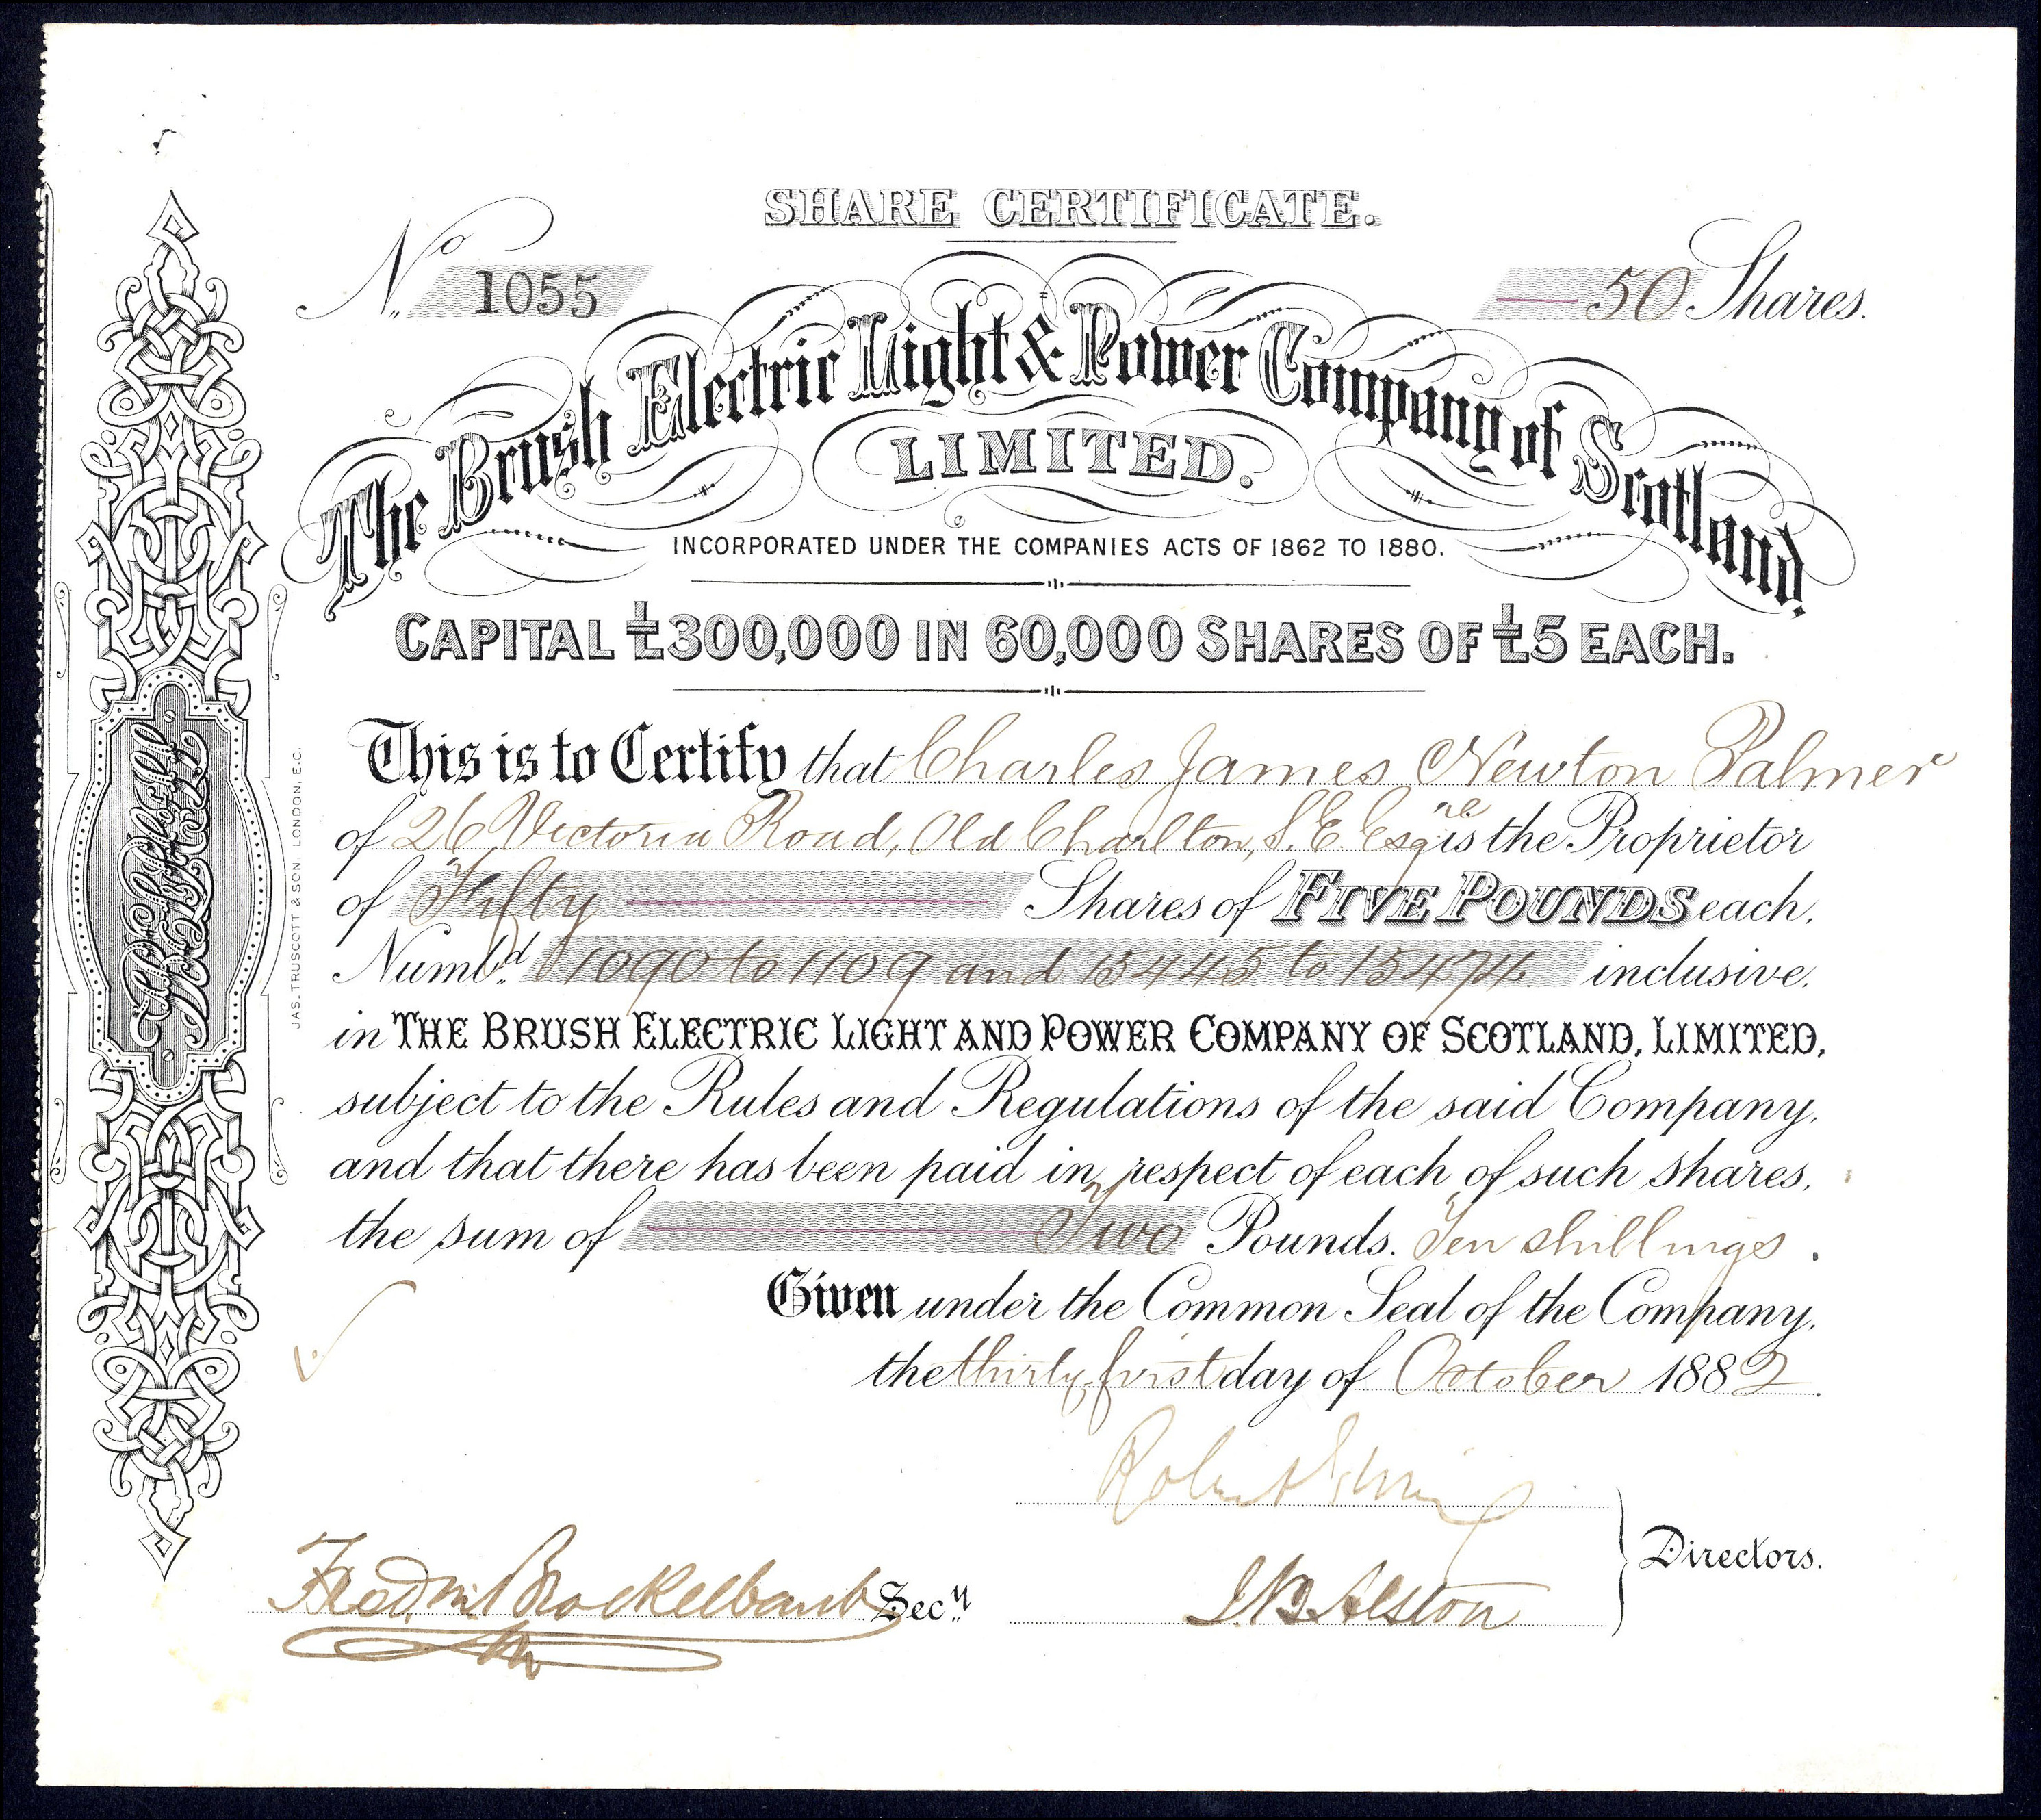 SHARE CERTIFICATE.
No. 1055
50 Shares.
The Brush Electric Light & Power Company of Scotland,
LIMITED.
INCORPORATED UNDER THE COMPANIES ACTS OF 1862 TO 1880.
CAPITAL £300,000 IN 60,000 SHARES OF £5 EACH.
This is to Certify that Charles James Newton Palmer
of 26 Victoria Road, Old Charlton, S.E. Esqre is the Proprietor
of Fifty Shares of FIVE POUNDS each,
Numbd. 1090 to 1109 and 15445 to 15474 inclusive,
in THE BRUSH ELECTRIC LIGHT AND POWER COMPANY OF SCOTLAND, LIMITED,
subject to the Rules and Regulations of the said Company,
and that there has been paid in respect of each of such shares,
the sum of Two Pounds. Ten shillings.
Given under the Common Seal of the Company,
the thirty first day of October 1882.
Robert
Directors.
Fredm. Brockelbank Secy.
J.B. Alston
JAS. TRUSCOTT & SON, LONDON, E.C.